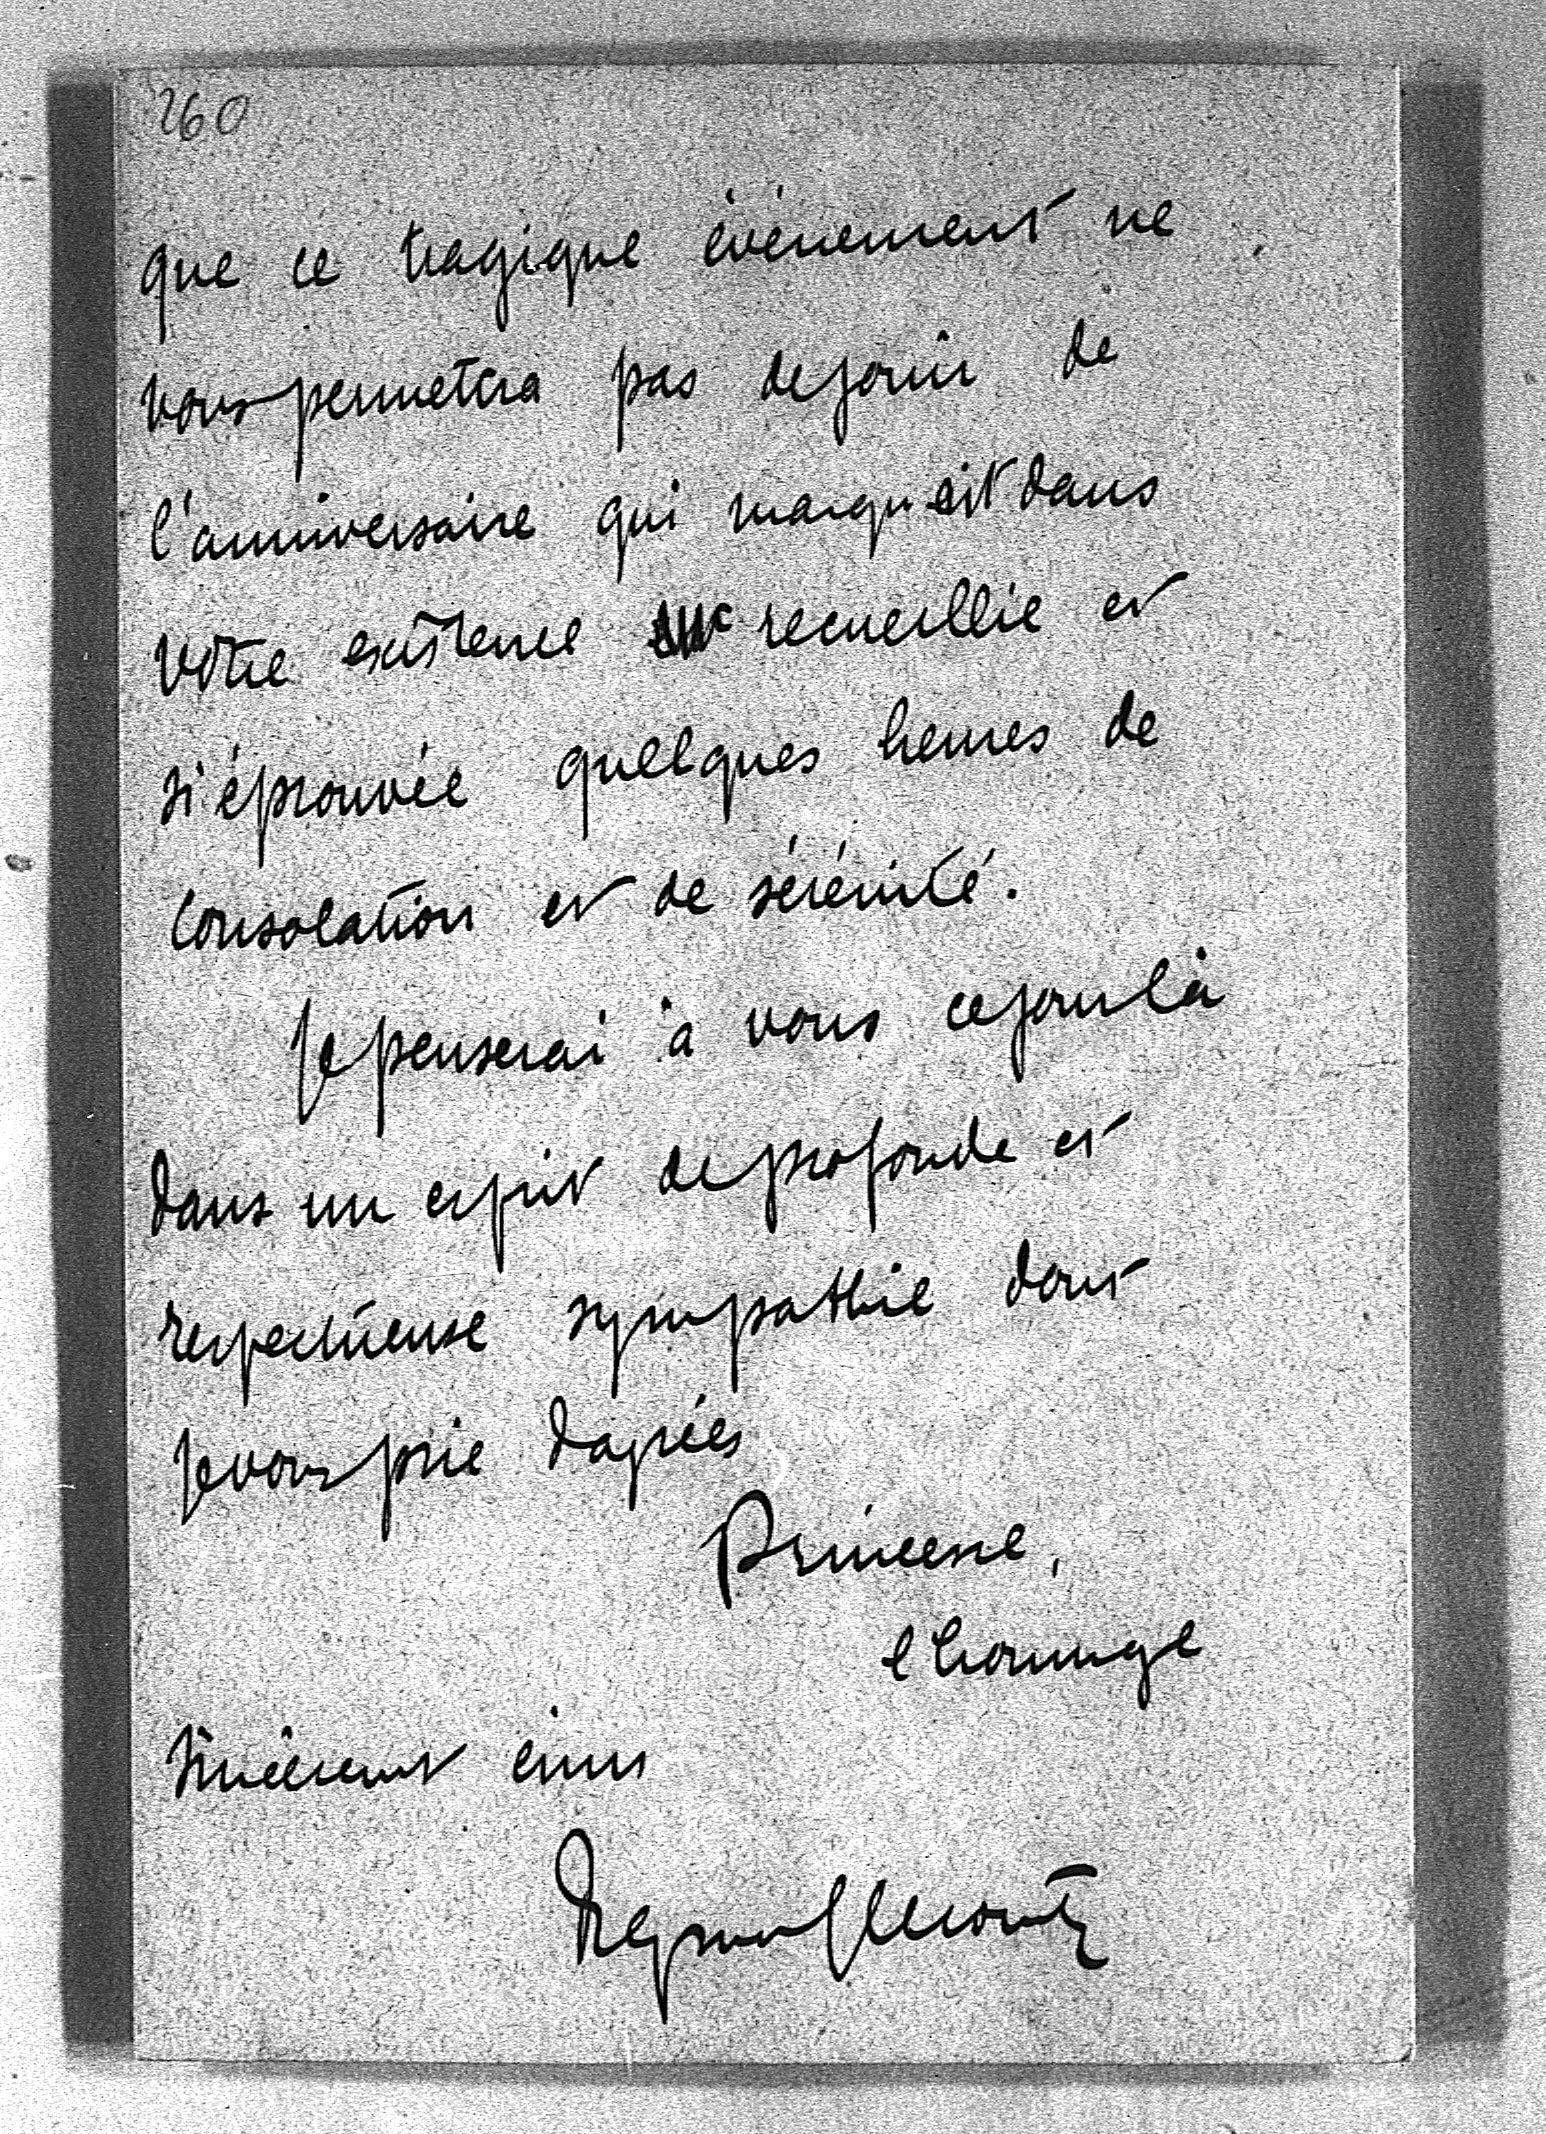 260
que ce tragique évènement ne
vous permettra pas de jouir de
l'anniversaire qui marquait dans
votre existence recueillie et
si éprouvée quelques heures de
consolation et de sérénité.
Je penserai à vous ce jour là
dans un esprit de profonde et
respectueuse sympathie dont
je vous prie d'agréer
Princesse,
l'hommage
sincèrement ému